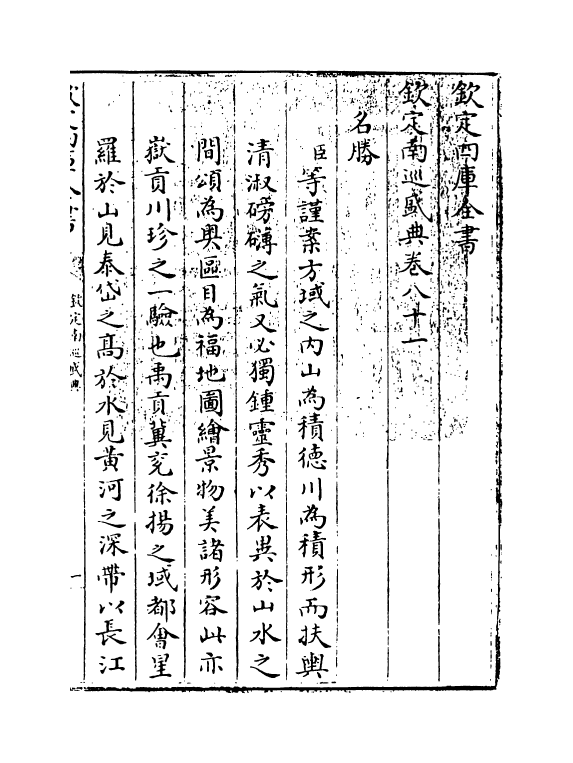 欽定四庫全書
欽定南巡盛典卷八十一
名勝
臣等謹案方域之内山為積德川為積形而扶輿
清淑磅礴之氣又必獨鍾靈秀以表異於山水之
間頌為奥區目為福地圖繪景物美諸形容此亦
嶽貢川珍之一驗也禹貢冀兖徐揚之域都會星
羅於山見泰岱之髙於水見黄河之深帶以長江
欽定南巡盛典
一